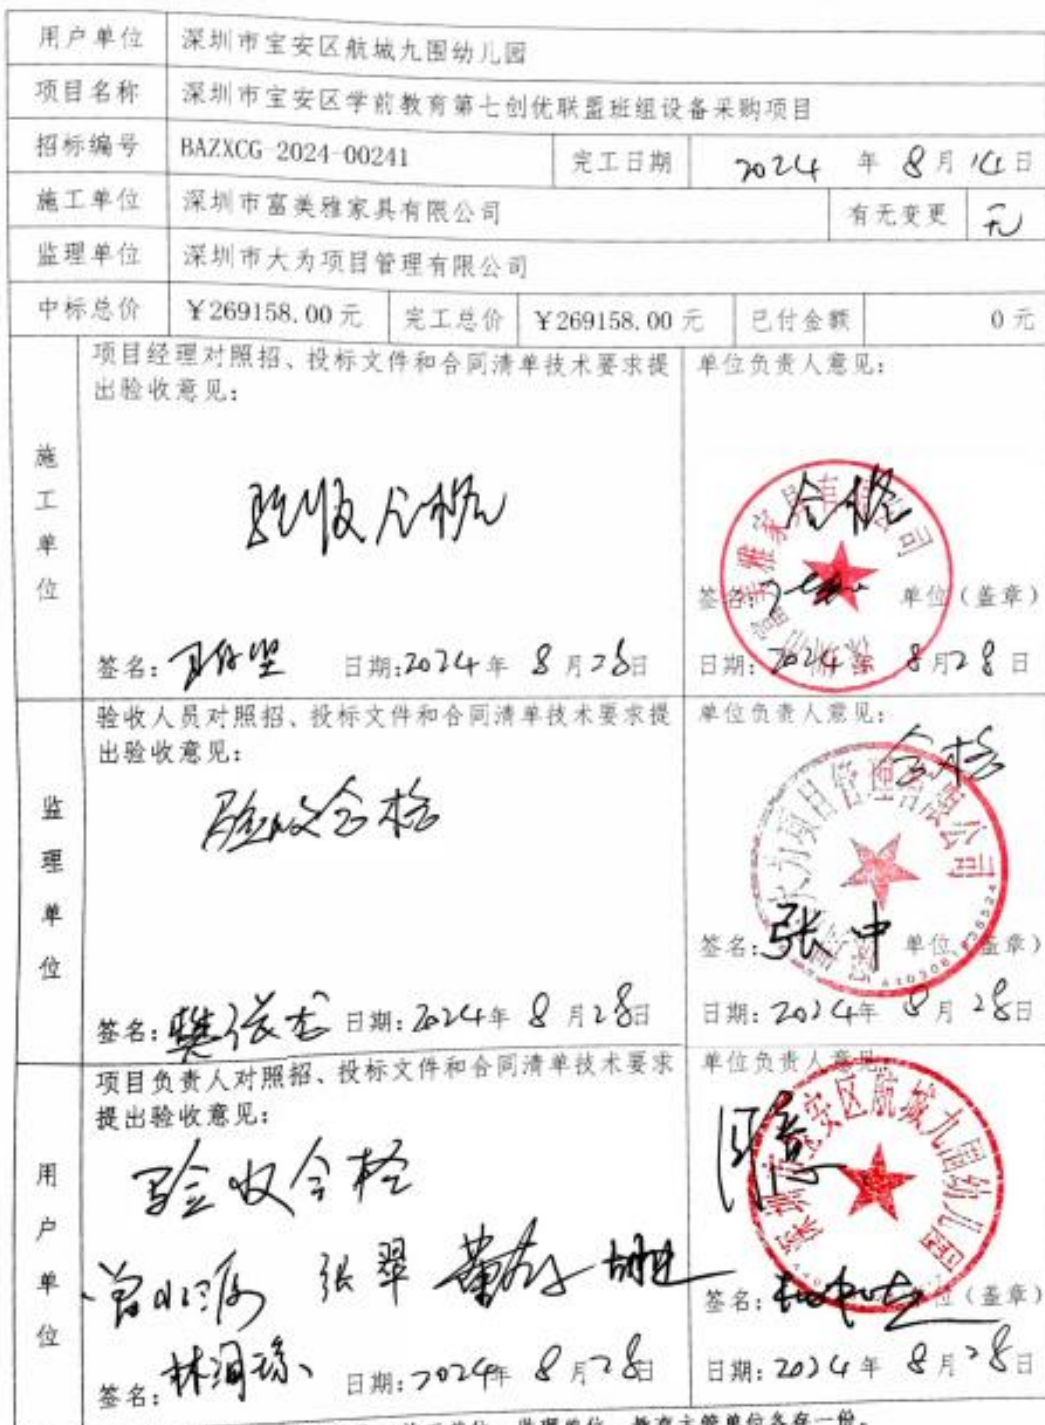 用户单位 深圳市宝安区航城九围幼儿园
项目名称 深圳市宝安区学前教育第七创优联盟班组设备采购项目
招标编号 BAZXCG-2024-00241 完工日期 2024 年 8月14日
施工单位 深圳市富美雅家具有限公司 有无变更 无
监理单位 深圳市大为项目管理有限公司
中标总价 ¥269158.00元 完工总价 ¥269158.00元 已付金额 0元
施工单位
项目经理对照招、投标文件和合同清单技术要求提
出验收意见:
验收合格
签名: 日期:2024年 8月28日
单位负责人意见:
合格
签名: 单位(盖章)
日期: 2024年 8月28日
监理单位
验收人员对照招、投标文件和合同清单技术要求提
出验收意见:
验收合格
签名: 日期:2024年 8月28日
单位负责人意见:
合格
大为项目管理有限公司
签名:张中 单位(盖章)
日期:2024年 8月28日
用户单位
项目负责人对照招、投标文件和合同清单技术要求
提出验收意见:
验收合格
张翠
签名: 日期:2024年 8月28日
单位负责人意见:
同意
深圳市宝安区航城九围幼儿园
签名: 单位(盖章)
日期:2024年 8月28日
监理单位、教育主管单位各存一份。